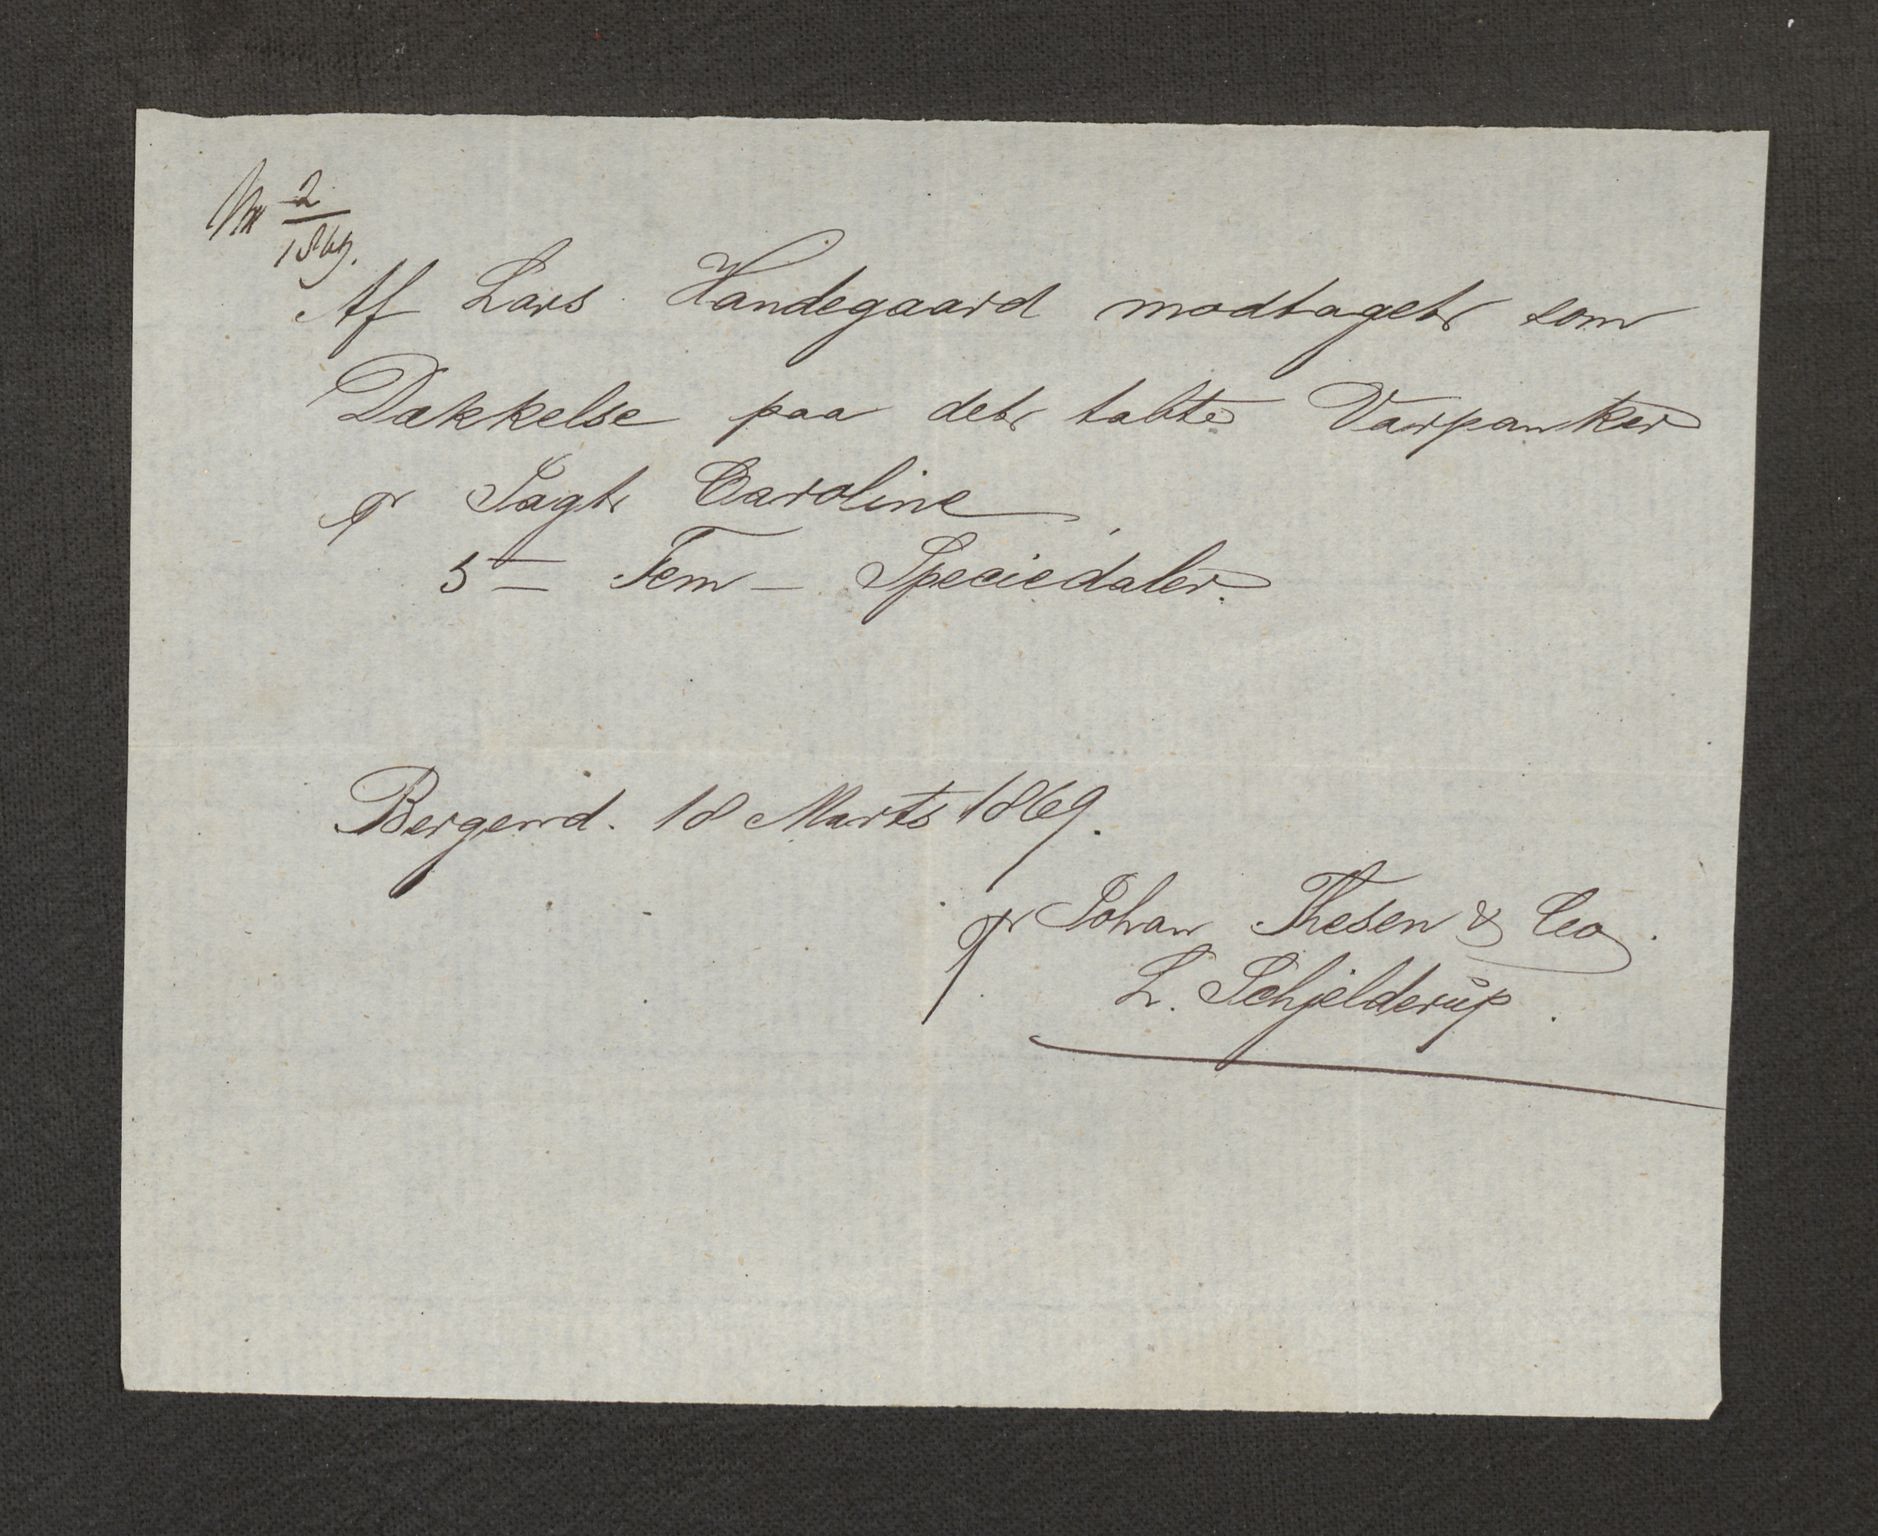 No 2/1869.
Af Lars Handegaard modtaget som
Dækkelse paa det tabte Varpanker
pr Jagt Caroline
5 — Fem — Speciedaler.
Bergen d. 18 Marts 1869.
pr Johan Thesen & Co.
L. Schjelderúp.